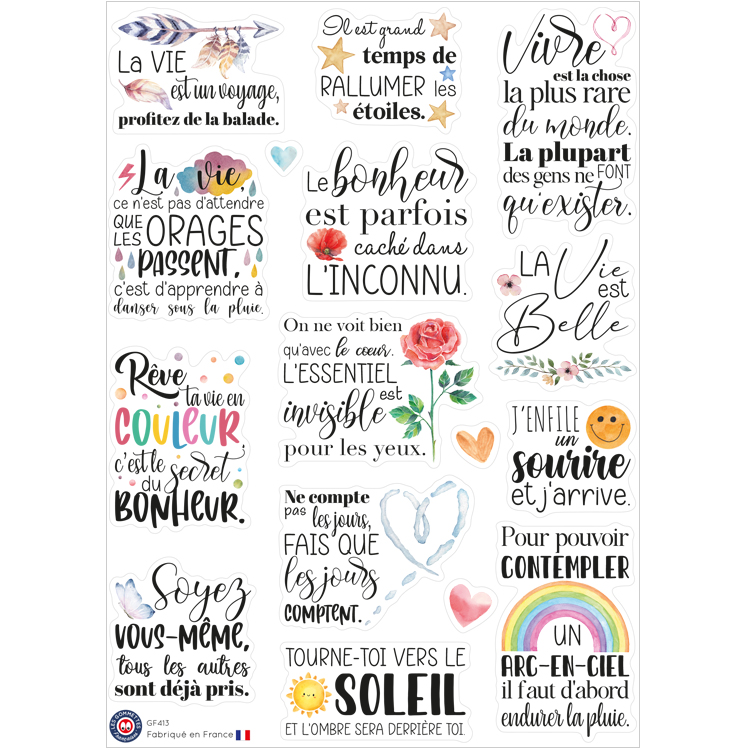 LA VIE
est un voyage,
profitez de la balade.
Il est grand
temps de
RALLUMER les
étoiles.
Vivre
est la chose
la plus rare
du monde.
La plupart
des gens ne FONT
qu'exister.
La vie,
ce n'est pas d'attendre
QUE
LES ORAGES
PASSENT,
c'est d'apprendre à
danser sous la pluie.
Le bonheur
est parfois
caché dans
L'INCONNU.
LA Vie
est
Belle
On ne voit bien
qu'avec le cœur.
L'ESSENTIEL
est
invisible
pour les yeux.
Rêve
ta vie en
COULEUR,
c'est le secret
du
BONHEUR.
J'ENFILE
un
sourire
et j'arrive.
Ne compte
pas les jours,
FAIS QUE
les jours
COMPTENT.
Pour pouvoir
CONTEMPLER
UN
ARC-EN-CIEL
il faut d'abord
endurer la pluie.
Soyez
VOUS-MÊME,
tous les autres
sont déjà pris.
TOURNE-TOI VERS LE
SOLEIL
ET L'OMBRE SERA DERRIÈRE TOI.
LES GOMMETTES
FRANÇAISES
GF413
Fabriqué en France